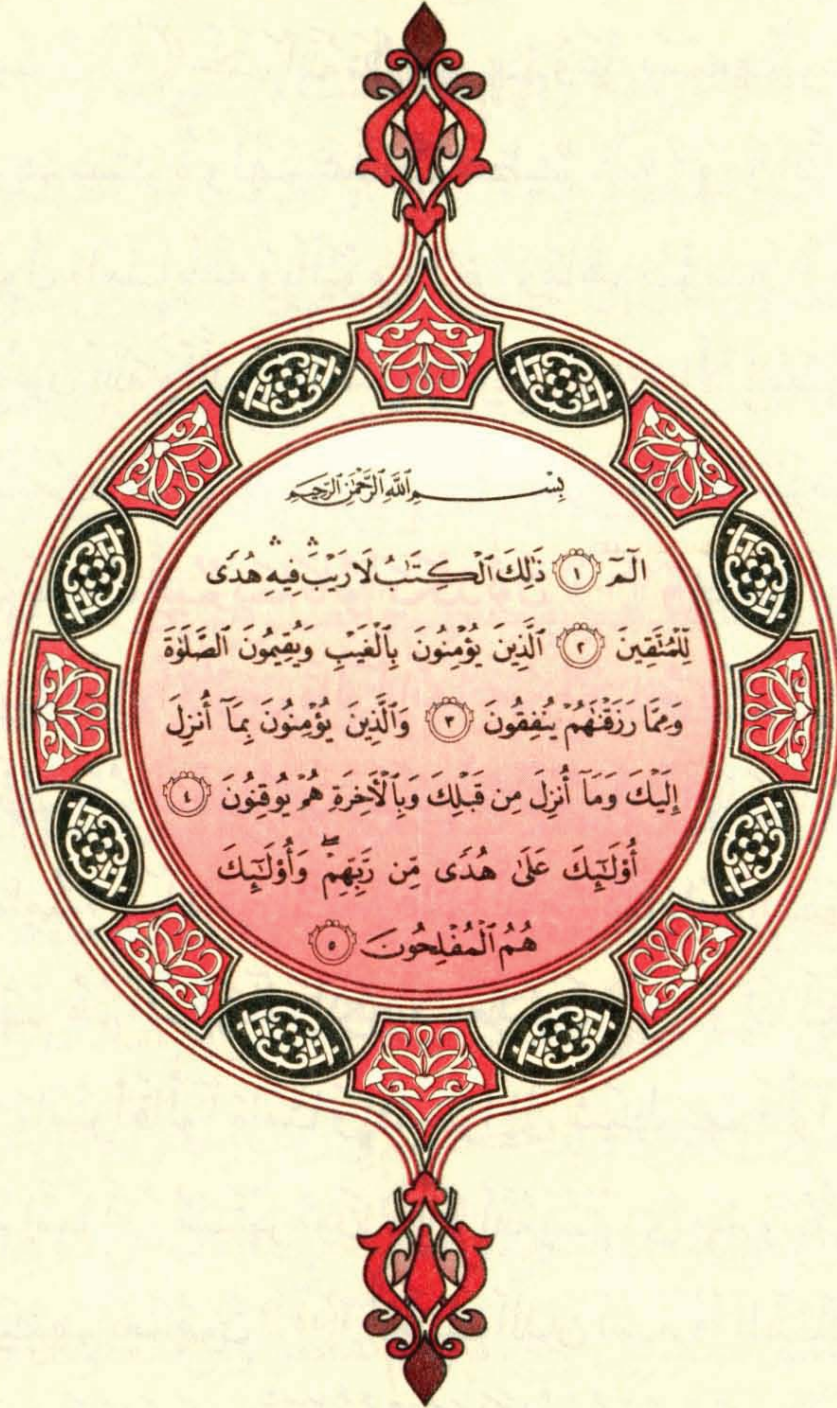 بِسْمِ ٱللَّهِ ٱلرَّحْمَٰنِ ٱلرَّحِيمِ
الٓمٓ ١ ذَٰلِكَ ٱلْكِتَٰبُ لَا رَيْبَ ۛ فِيهِ ۛ هُدًى
لِّلْمُتَّقِينَ ٢ ٱلَّذِينَ يُؤْمِنُونَ بِٱلْغَيْبِ وَيُقِيمُونَ ٱلصَّلَوٰةَ
وَمِمَّا رَزَقْنَٰهُمْ يُنفِقُونَ ٣ وَٱلَّذِينَ يُؤْمِنُونَ بِمَآ أُنزِلَ
إِلَيْكَ وَمَآ أُنزِلَ مِن قَبْلِكَ وَبِٱلْـَٔاخِرَةِ هُمْ يُوقِنُونَ ٤
أُو۟لَٰٓئِكَ عَلَىٰ هُدًى مِّن رَّبِّهِمْ ۖ وَأُو۟لَٰٓئِكَ
هُمُ ٱلْمُفْلِحُونَ ٥